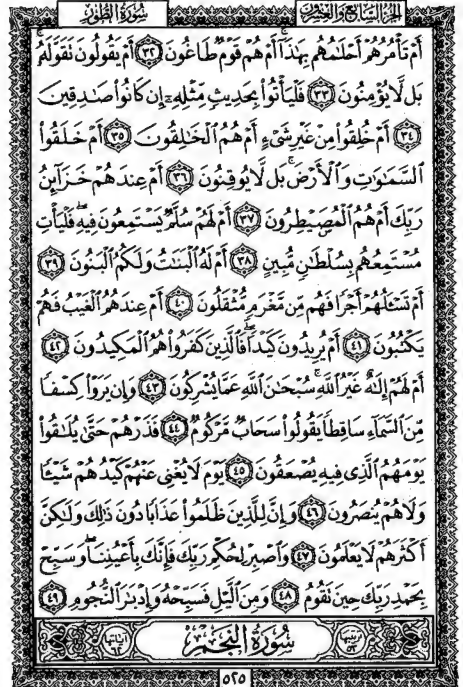 الجزء السابع والعشرون سورة الطور
أَمْ تَأْمُرُهُمْ أَحْلَٰمُهُم بِهَٰذَآ ۚ أَمْ هُمْ قَوْمٌ طَاغُونَ ٣٢ أَمْ يَقُولُونَ تَقَوَّلَهُۥ ۚ
بَل لَّا يُؤْمِنُونَ ٣٣ فَلْيَأْتُوا۟ بِحَدِيثٍ مِّثْلِهِۦٓ إِن كَانُوا۟ صَٰدِقِينَ
٣٤ أَمْ خُلِقُوا۟ مِنْ غَيْرِ شَىْءٍ أَمْ هُمُ ٱلْخَٰلِقُونَ ٣٥ أَمْ خَلَقُوا۟
ٱلسَّمَٰوَٰتِ وَٱلْأَرْضَ ۚ بَل لَّا يُوقِنُونَ ٣٦ أَمْ عِندَهُمْ خَزَآئِنُ
رَبِّكَ أَمْ هُمُ ٱلْمُصَۣيْطِرُونَ ٣٧ أَمْ لَهُمْ سُلَّمٌ يَسْتَمِعُونَ فِيهِ ۖ فَلْيَأْتِ
مُسْتَمِعُهُم بِسُلْطَٰنٍ مُّبِينٍ ٣٨ أَمْ لَهُ ٱلْبَنَٰتُ وَلَكُمُ ٱلْبَنُونَ ٣٩
أَمْ تَسْـَٔلُهُمْ أَجْرًا فَهُم مِّن مَّغْرَمٍ مُّثْقَلُونَ ٤٠ أَمْ عِندَهُمُ ٱلْغَيْبُ فَهُمْ
يَكْتُبُونَ ٤١ أَمْ يُرِيدُونَ كَيْدًا ۖ فَٱلَّذِينَ كَفَرُوا۟ هُمُ ٱلْمَكِيدُونَ ٤٢
أَمْ لَهُمْ إِلَٰهٌ غَيْرُ ٱللَّهِ ۚ سُبْحَٰنَ ٱللَّهِ عَمَّا يُشْرِكُونَ ٤٣ وَإِن يَرَوْا۟ كِسْفًا
مِّنَ ٱلسَّمَآءِ سَاقِطًا يَقُولُوا۟ سَحَابٌ مَّرْكُومٌ ٤٤ فَذَرْهُمْ حَتَّىٰ يُلَٰقُوا۟
يَوْمَهُمُ ٱلَّذِى فِيهِ يُصْعَقُونَ ٤٥ يَوْمَ لَا يُغْنِى عَنْهُمْ كَيْدُهُمْ شَيْـًٔا
وَلَا هُمْ يُنصَرُونَ ٤٦ وَإِنَّ لِلَّذِينَ ظَلَمُوا۟ عَذَابًا دُونَ ذَٰلِكَ وَلَٰكِنَّ
أَكْثَرَهُمْ لَا يَعْلَمُونَ ٤٧ وَٱصْبِرْ لِحُكْمِ رَبِّكَ فَإِنَّكَ بِأَعْيُنِنَا ۖ وَسَبِّحْ
بِحَمْدِ رَبِّكَ حِينَ تَقُومُ ٤٨ وَمِنَ ٱلَّيْلِ فَسَبِّحْهُ وَإِدْبَٰرَ ٱلنُّجُومِ ٤٩
ترتيبها ٥٣ سورة النجم آياتها ٦٢
٥٢٥